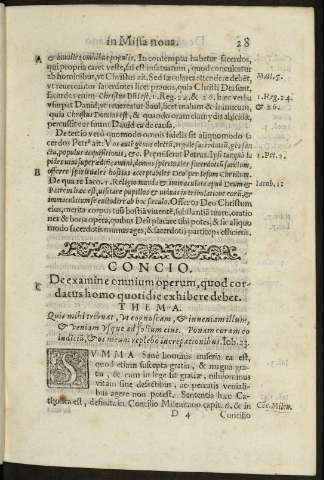 in Missa noua. 28
A & inutiles ambulat populis. In contemptu habetur sacerdos,
qui propria caret veste, sal est insatuatum, quod conculcatur
ab hominibus, vt Christus ait. Sed sæculares attendere debēt, Mat. 5.
vt reuereantur sacerdotes licet prauos, quia Christi Dei sunt,
sacrādo enim Christus Dñi est. 1. Reg. 24. & 26. hæc verba 1. Reg. 24.
vsurpat Dauid, vt reuereatur Saul, licet malum & inimicum, & 26.
quia Christus Domini est, & quando oram clamydis abscidit,
percussit se sinus Dauid ea de causa.
De tertio verò quomodo omnis fidelis sit aliquomodo sa
cerdos Petrus ait. Vos autē genus electū, regale sacerdotiū, gēs san
cta, populus acquisitionis, &c. Præmiserat Petrus. Ipsi tanquā la 1. Pet. 2.
pides viui superædificamini, domus spiritualis sacerdotiū sanctum,
B offerre spirituales hostias acceptabiles Deo per Iesum Christum.
De qua re Iaco. 1. Religio munda & immaculata apud Deum & Iacob. 1.
Patrem hæc est, visitare pupillos & viduas in tribulatione eorū, &
immaculatum se custodire ab hoc sæculo. Offerto Deo Christum
eius, merita corpus tuū hostiā viuentē, substantiā tuam, oratio
nes & bona opera, quibus Dei placare tibi potes, & sic aliquo
modo sacerdotis munus ages, & sacerdotij particeps efficieris.
CONCIO.
C De examine omnium operum, quod cor-
datus homo quotidie exhibere debet.
THEMA.
Quis mihi tribuat, vt cognoscam, & inueniam illum,
& veniam vsque ad solium eius. Ponam coram eo
iudiciū, & os meum replebo increpationibus. Iob. 23.
SVMMA Sanè hominis miseria ea est,
quod etiam suscepta gratia, & magna gra
tia, & cum in lege sit gratiæ, nihilominus
vitam sine defectibus, ac peccatis veniali-
bus agere non potest. Sententia hæc Ca-
tholica est, definita in Concilio Mileuitano capit. 6. & in Cōc. Mileu.
D 4 Concilio